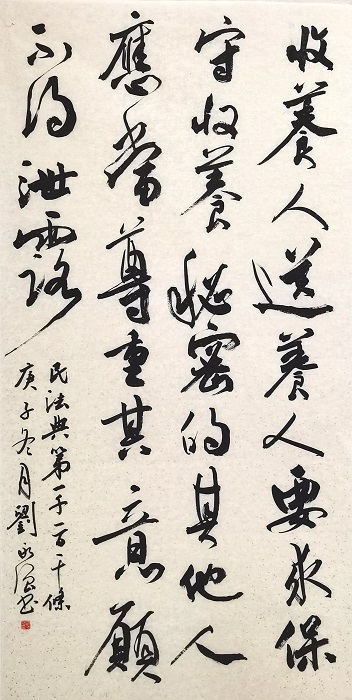 收養人送養人要求保
守收養秘密的其他人
應當尊重其意願
不得泄露
民法典第一千一百十條
庚子冬月劉永書